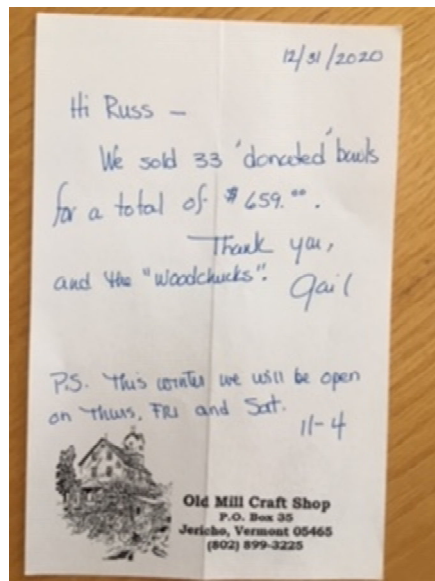 12/31/2020
Hi Russ —
We sold 33 'donated' bowls
for a total of $659.00.
Thank you,
and the "Woodchucks".
Gail
P.S. This winter we will be open
on Thurs, FRI and Sat.
11-4
Old Mill Craft Shop
P.O. Box 35
Jericho, Vermont 05465
(802) 899-3225